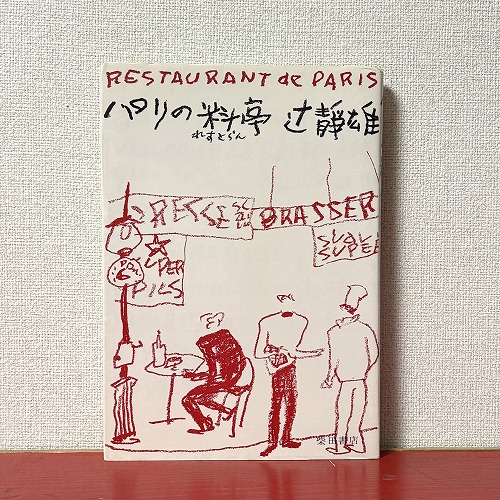 RESTAURANT de PARIS
パリの料亭 辻静雄
れすとらん
BRASSER
SUPER
PILS
柴田書店